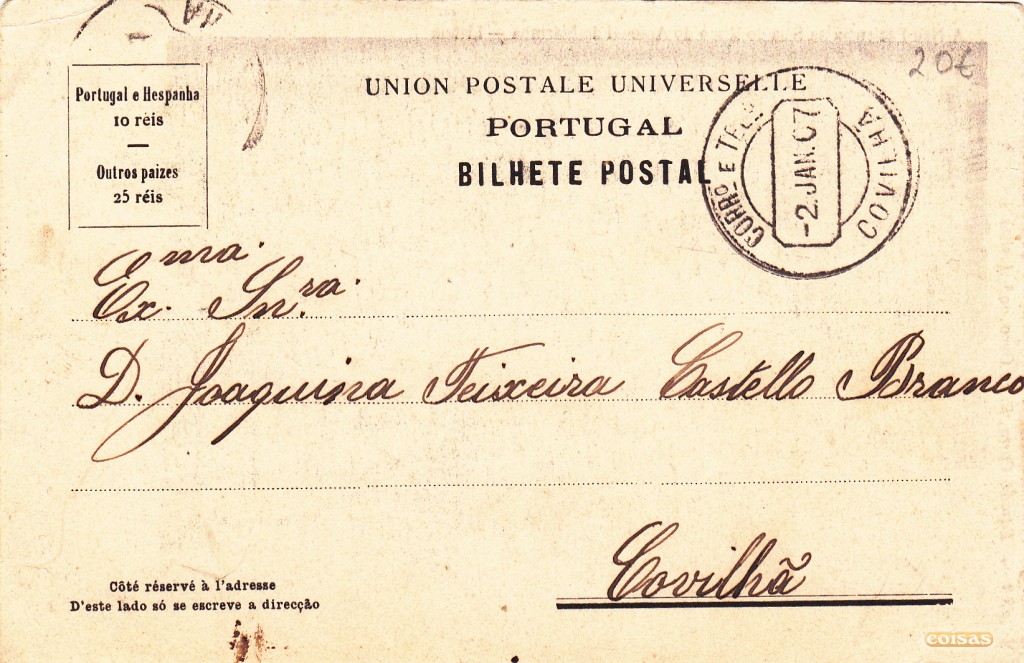 20€
Portugal e Hespanha
10 réis
Outros paizes
25 réis
UNION POSTALE UNIVERSELLE
PORTUGAL
BILHETE POSTAL
CORRO E TELO
-2.JAN.07
COVILHÃ
Exma. Snra.
D. Joaquina Teixeira Castello Branco
Covilhã
Côté réservé à l'adresse
D'este lado só se escreve a direcção
coisas